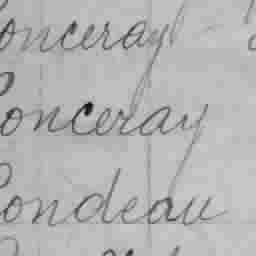 Conceray
Conceray
Condeau